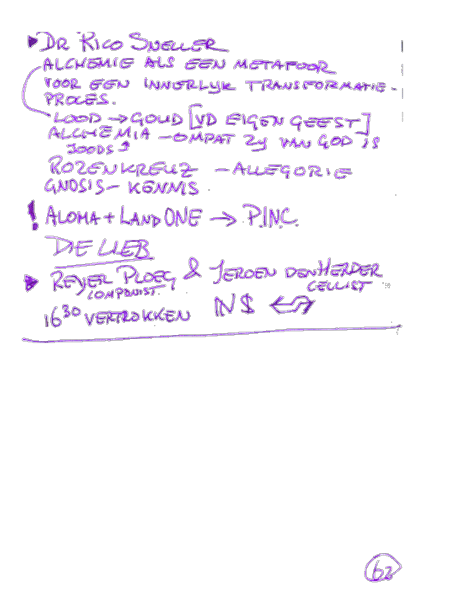 ▶ DR RICO SNELLER
ALCHEMIE ALS EEN METAFOOR
VOOR EEN INNERLIJK TRANSFORMATIE-
PROCES.
LOOD → GOUD [VD EIGEN GEEST]
ALCHEMIA - OMDAT ZIJ VAN GOD IS
JOODS ↑
ROZENKREUZ - ALLEGORIE
GNOSIS - KENNIS
! ALOMA + LANDONE → P.INC.
DIE LIEB
▶ REYER PLOEG & JEROEN DEN HERDER
COMPONIST. CELLIST
16³⁰ VERTROKKEN
62